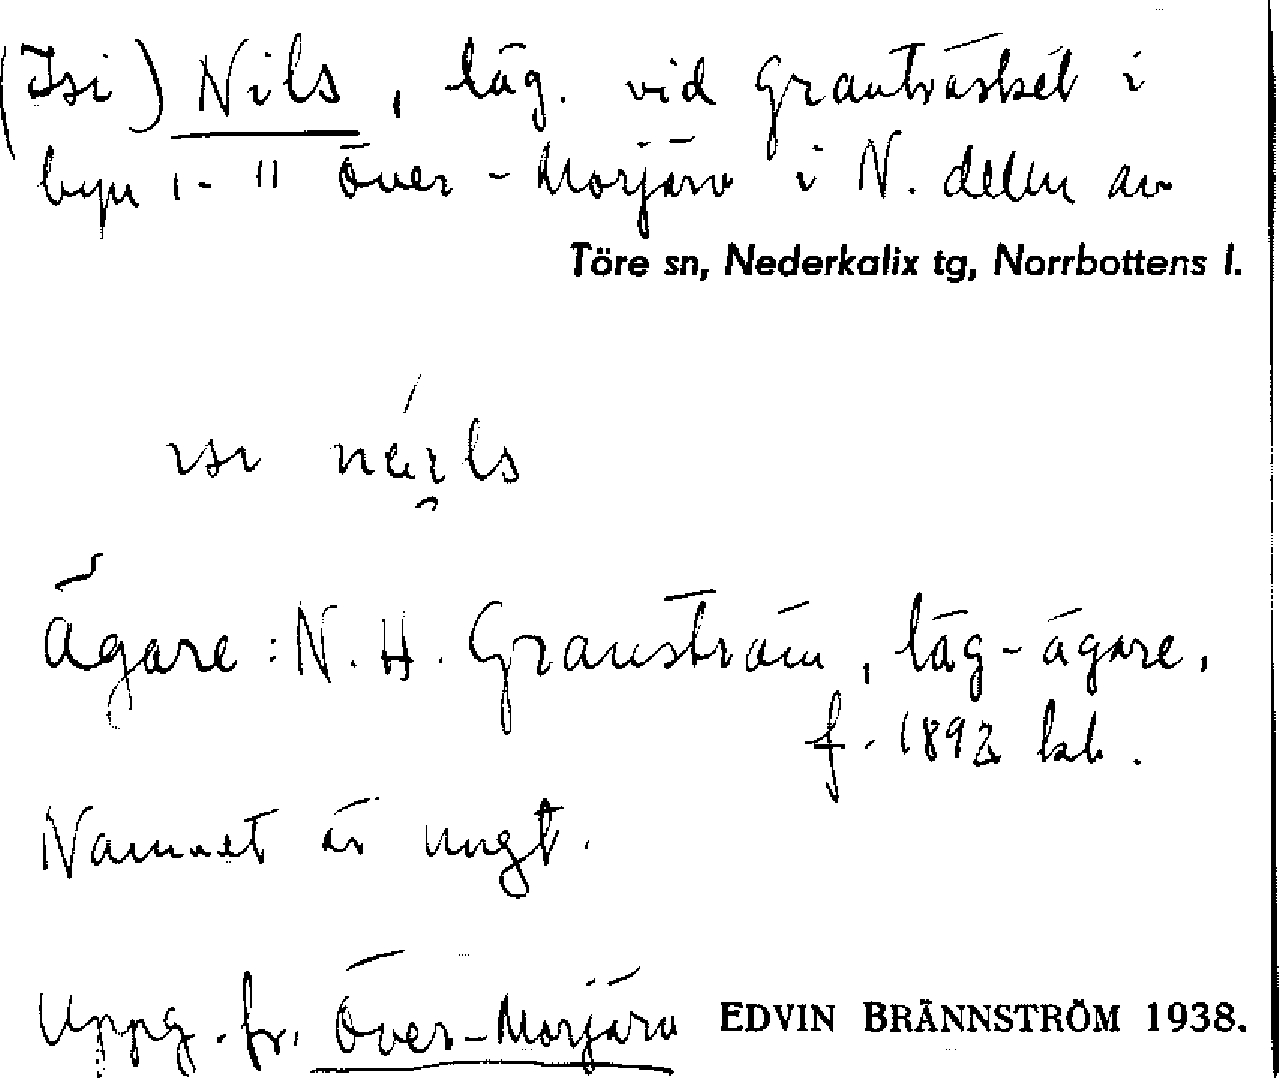 (Isi) Nils, läg. vid Granträsket i
byn 1- 11 Över-Morjärv i N. delen av
Töre sn, Nederkalix tg, Norrbottens l.
ägare: N. H. Granström, läg-ägare,
f. 1893 kb.
Namnet är ungt.
Uppg. fr. Över-Morjärv EDVIN BRÄNNSTRÖM 1938.